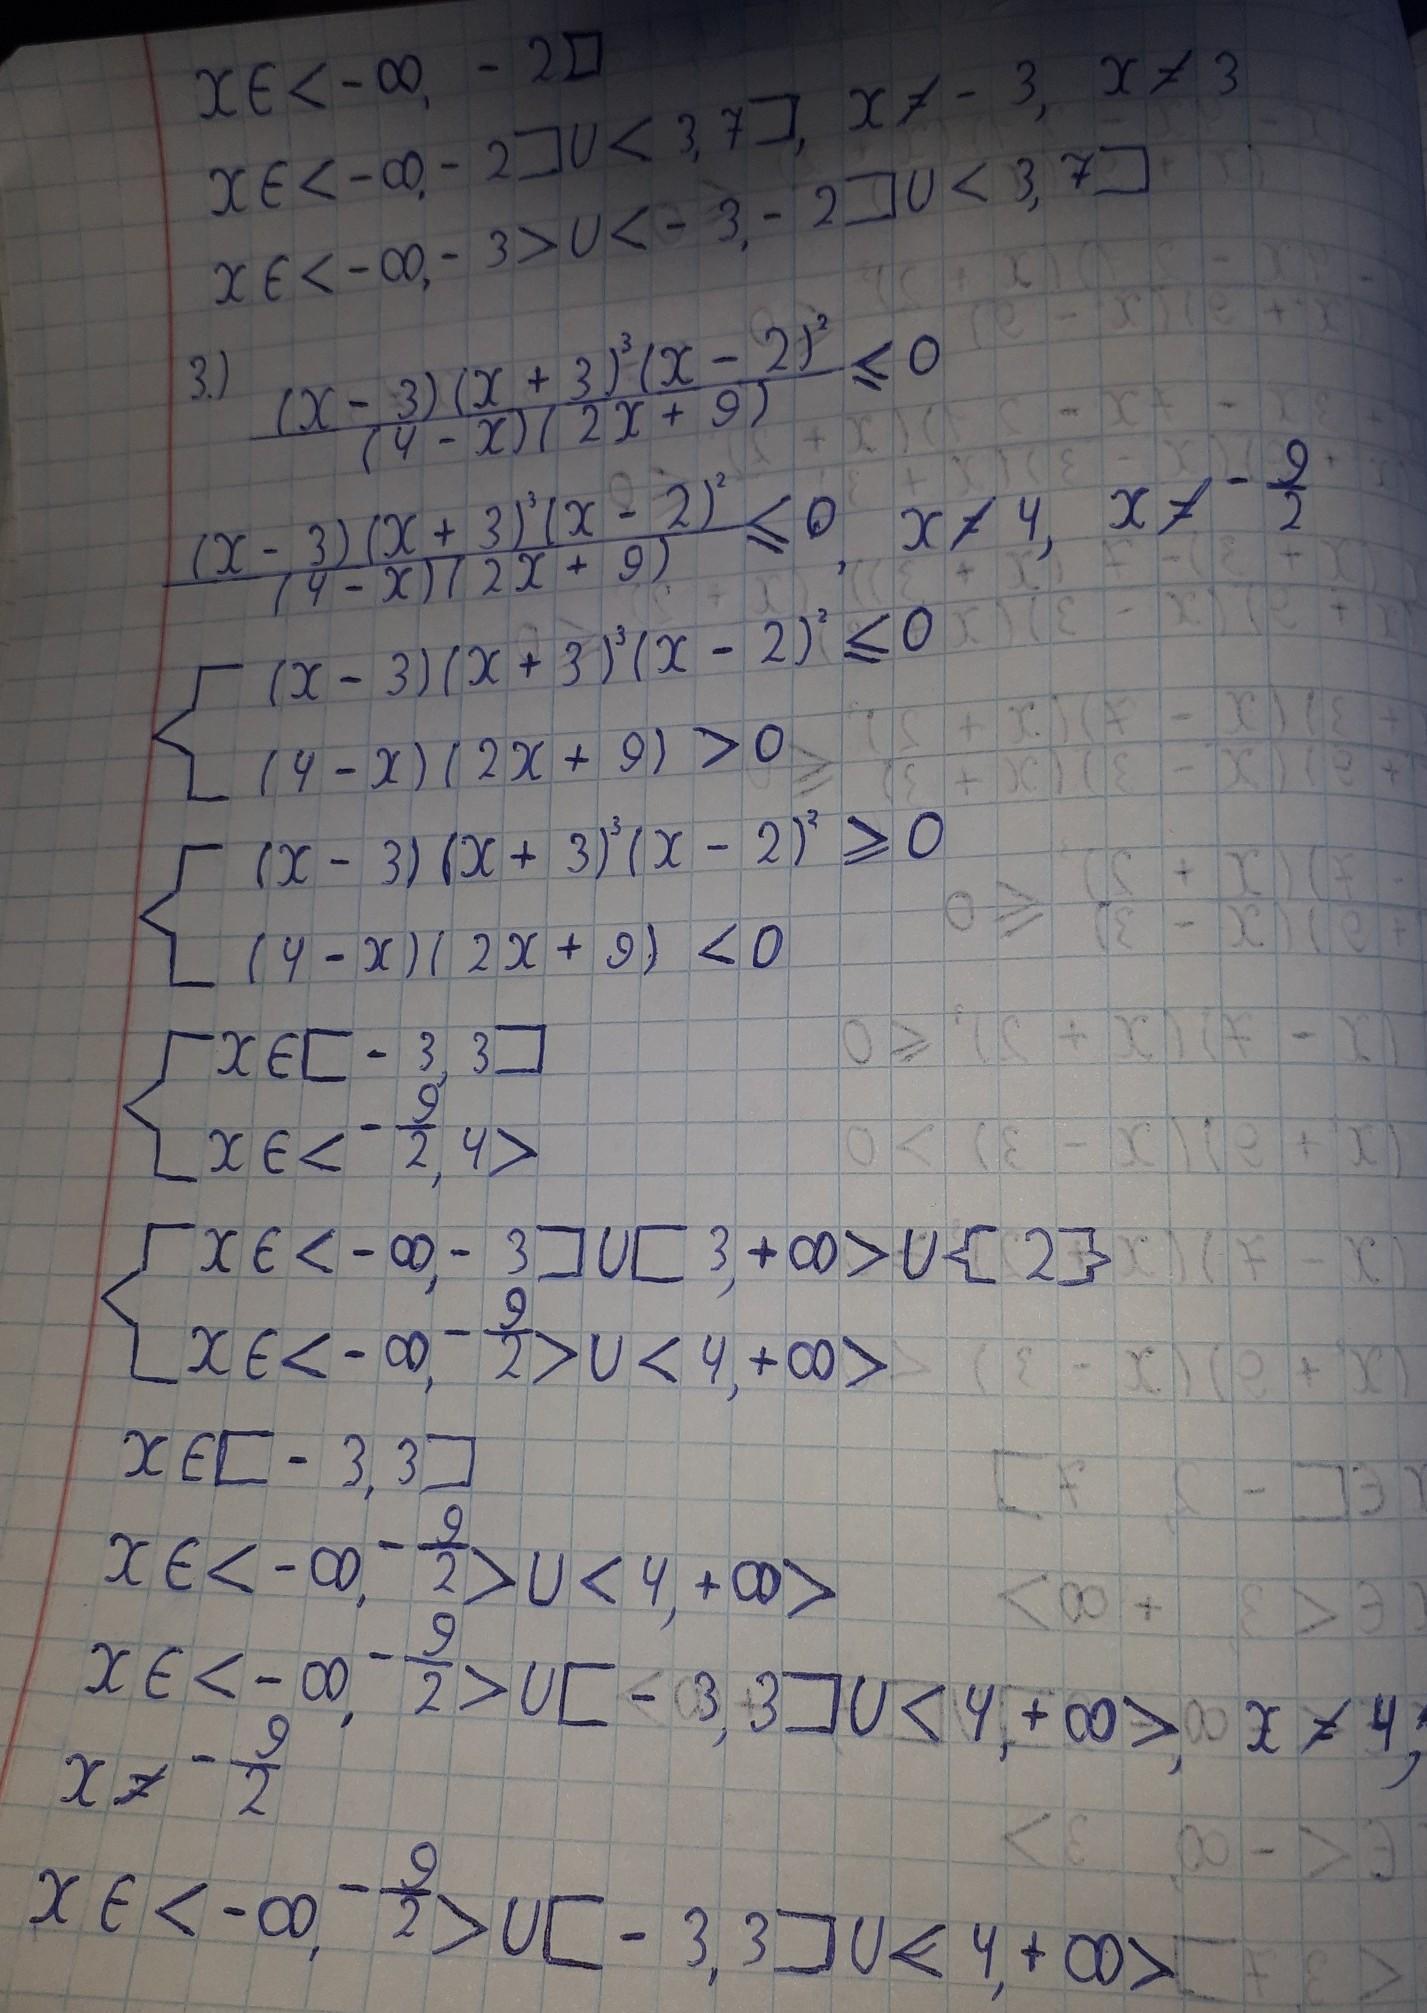 x ∈ < -∞, -2]
x ∈ < -∞, -2] ∪ < 3, 7], x ≠ -3, x ≠ 3
x ∈ < -∞, -3 > ∪ < -3, -2] ∪ < 3, 7]
3.) (x - 3)(x + 3)³(x - 2)² / (4 - x)(2x + 9) ≤ 0
(x - 3)(x + 3)³(x - 2)² / (4 - x)(2x + 9) ≤ 0, x ≠ 4, x ≠ -9/2
(x - 3)(x + 3)³(x - 2)² ≤ 0
(4 - x)(2x + 9) > 0
(x - 3)(x + 3)³(x - 2)² ≥ 0
(4 - x)(2x + 9) < 0
x ∈ [-3, 3]
x ∈ < -9/2, 4 >
x ∈ < -∞, -3] ∪ [3, +∞ > ∪ {2}
x ∈ < -∞, -9/2 > ∪ < 4, +∞ >
x ∈ [-3, 3]
x ∈ < -∞, -9/2 > ∪ < 4, +∞ >
x ∈ < -∞, -9/2 > ∪ [-3, 3] ∪ < 4, +∞ >, x ≠ 4,
x ≠ -9/2
x ∈ < -∞, -9/2 > ∪ [-3, 3] ∪ < 4, +∞ >